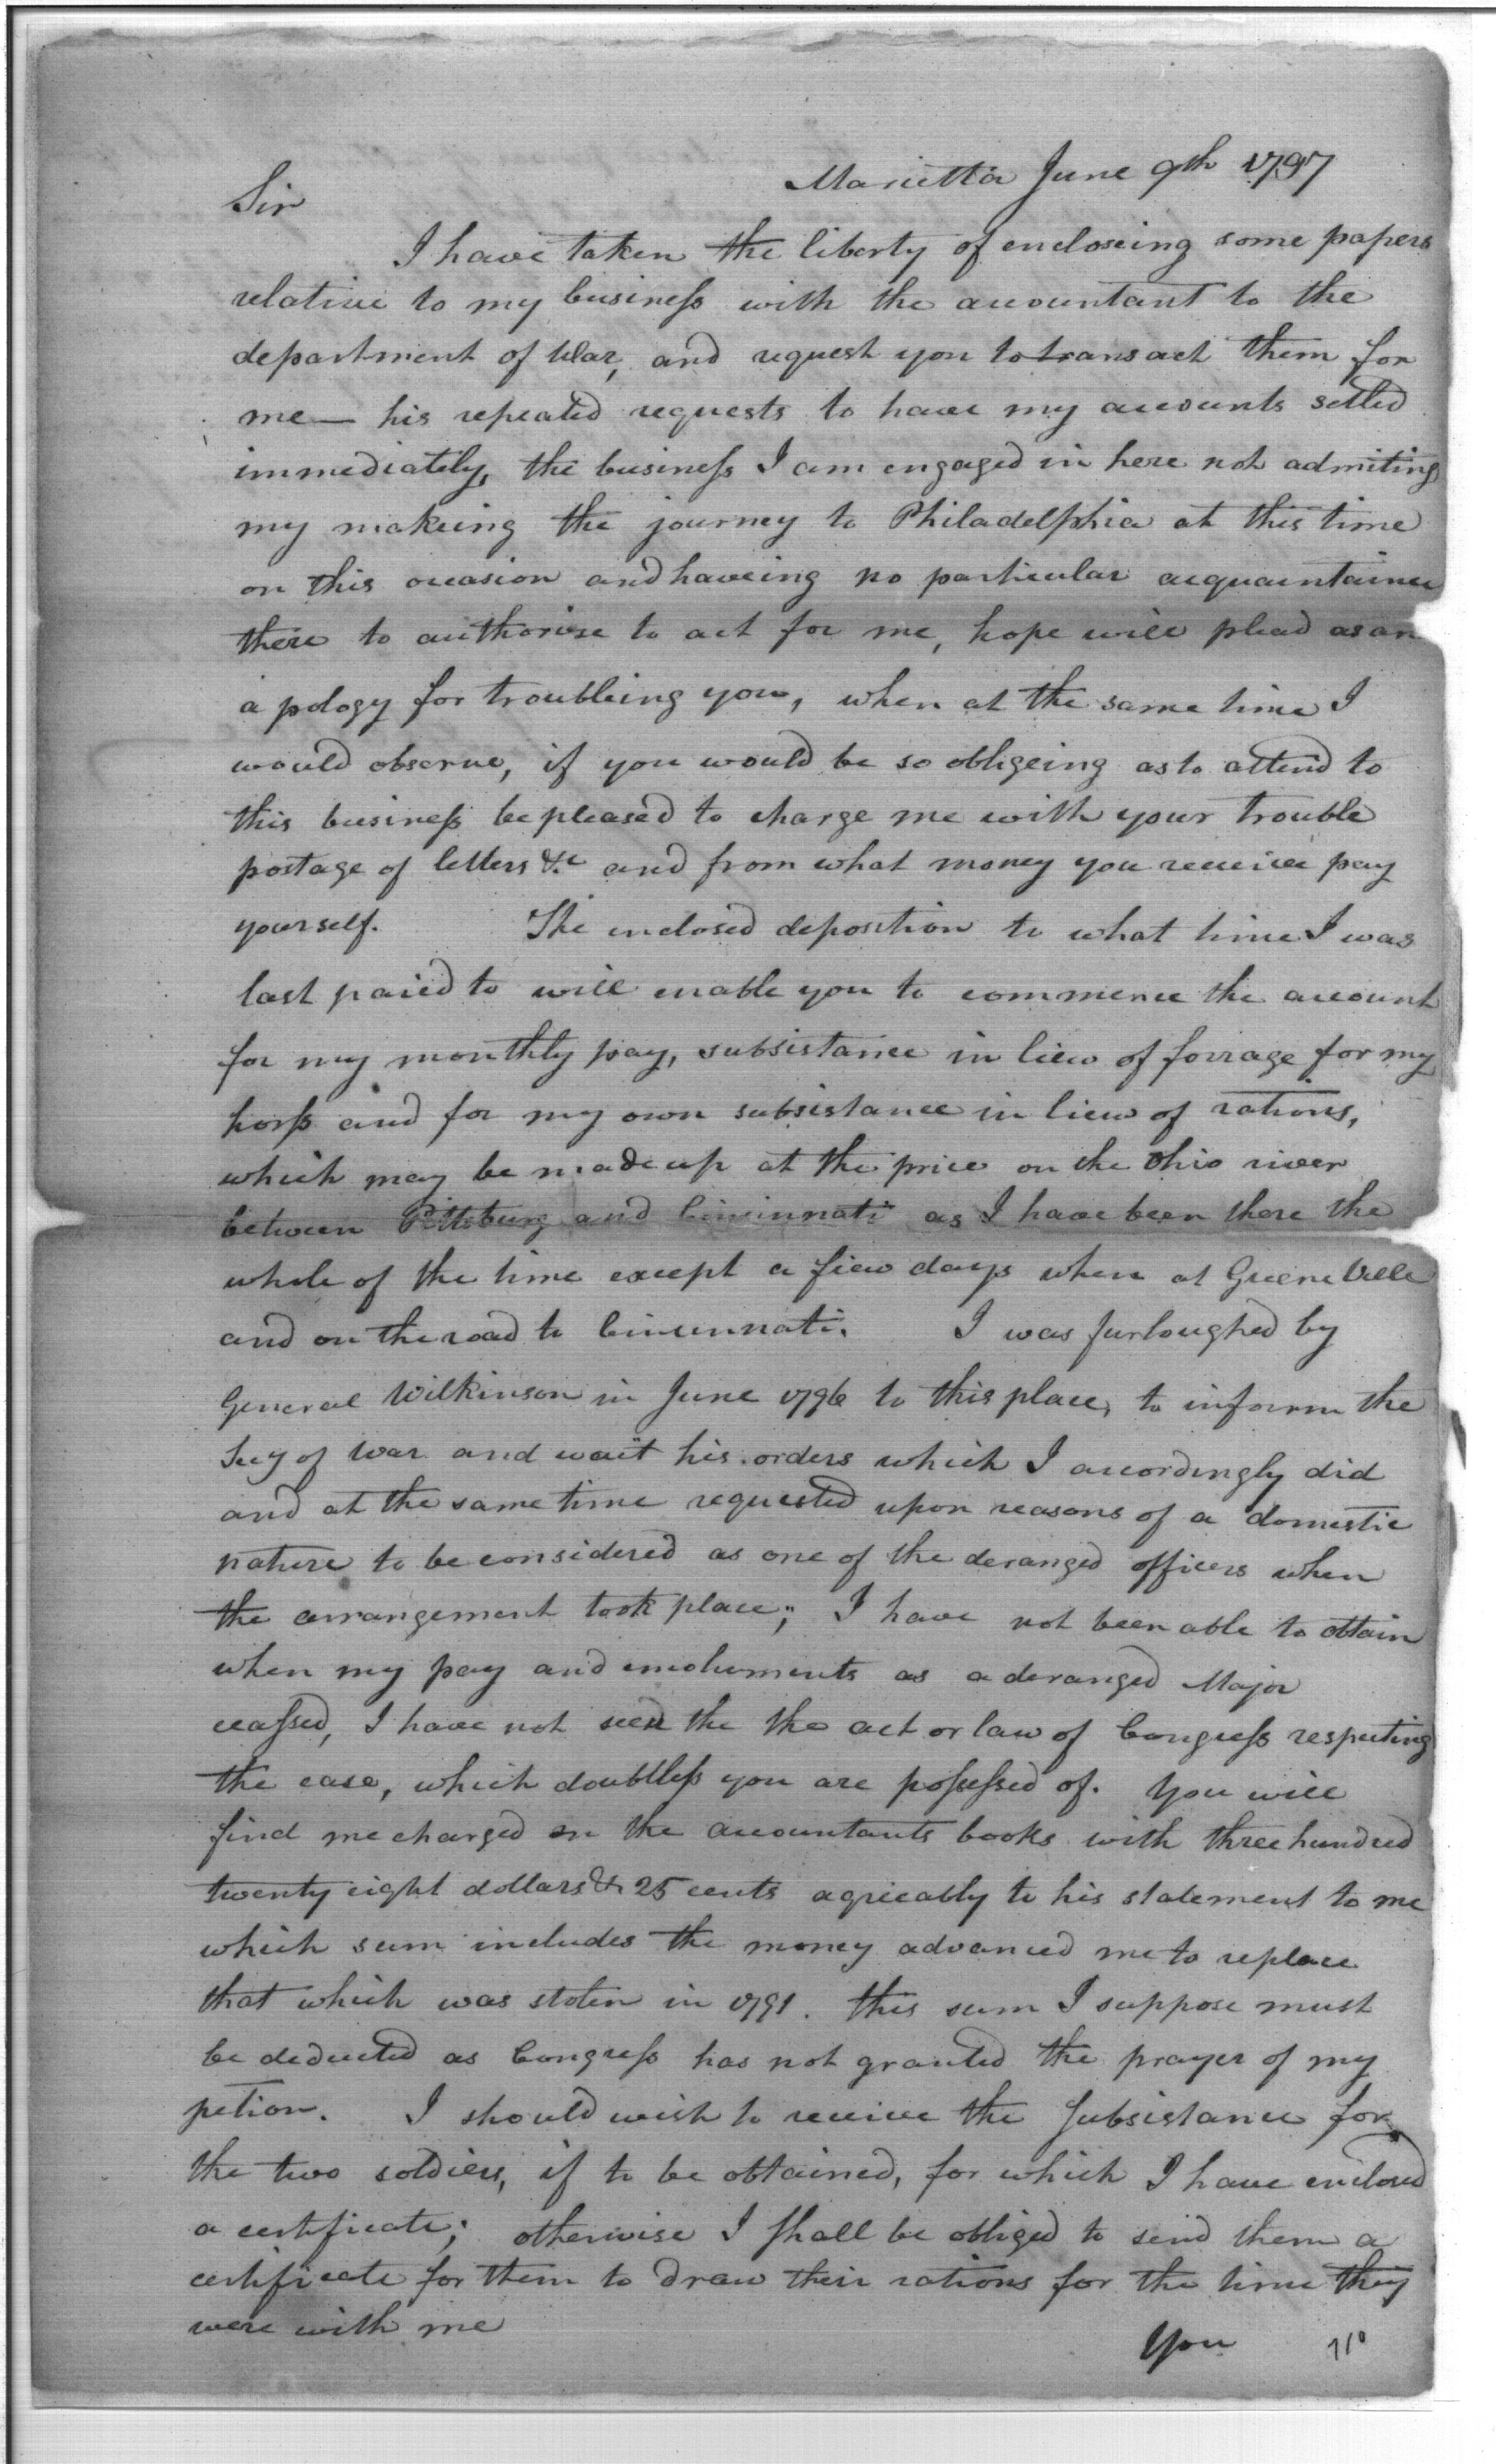 Marietta June 9th 1797
Sir
I have taken the liberty of encloseing some papers
relative to my business with the accountant to the
department of War, and request you to transact them for
me — his repeated requests to have my accounts setled
immediately, the business I am engaged in here not admiting
my makeing the journey to Philadelphia at this time
on this occasion and haveing no particular acquaintaince
there to authorise to act for me, hope will plead as an
apology for troubleing you, when at the same time I
would observe, if you would be so obligeing as to attend to
this business be pleased to charge me with your trouble
postage of letters &c and from what money you receive pay
yourself. The enclosed deposition to what time I was
last paied to will enable you to commence the account
for my monthly pay, subsistance in lieu of forrage for my
horss and for my own subsistance in lieu of rations,
which may be made up at the price on the Ohio river
between Pittsburg and Cincinnati as I have been there the
whole of the time except a few days when at Greene Ville
and on the road to Cincinnati. I was furloughed by
General Wilkinson in June 1796 to this place, to inform the
Secy of War and wait his orders which I accordingly did
and at the same time requested upon reasons of a domestic
nature to be considered as one of the deranged officers when
the arrangement took place; I have not been able to obtain
when my pay and emoluments as a deranged Major
ceassed, I have not seen the the act or law of Congress respecting
the case, which doubtless you are possessed of. You will
find me charged on the accountants books with three hundred
twenty eight dollars & 25 cents agreeably to his statement to me
which sum includes the money advanced me to replace
that which was stolen in 1791. this sum I suppose must
be deducted as Congress has not granted the prayer of my
petion. I should wish to receive the Subsistance for
the two soldiers, if to be obtained, for which I have enclosed
a certificate; otherwise I shall be obliged to send them a
certificate for them to draw their rations for the time they
were with me
You 710